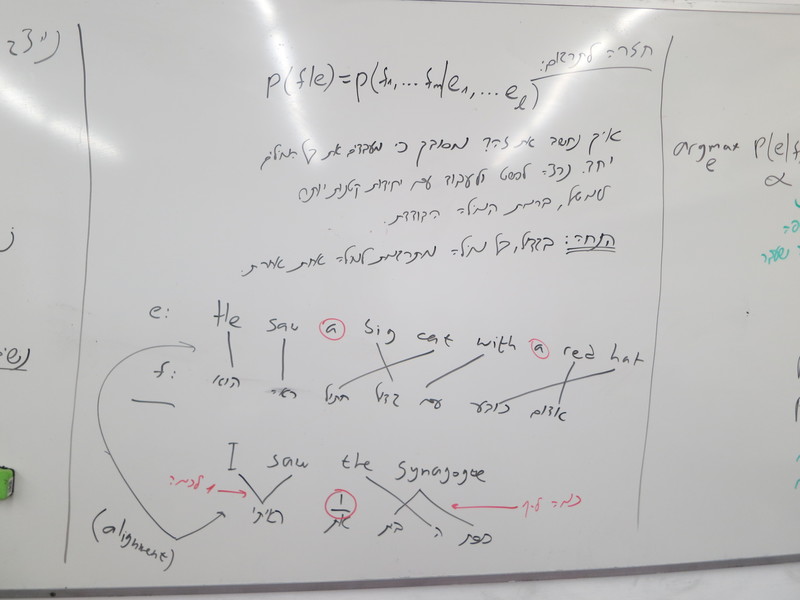 חזרה לתרגום:
p(f|e) = p(f₁, ... fₘ|e₁, ... eₗ)
איך נחשב את זה? מסובך כי מערבבים את כל המילים
יחד. נרצה לפשט ולעבוד עם יחידות קטנות יותר
למשל, ברמת המילה הבודדת.
הנחה: בגדול, כל מילה מתורגמת למילה אחת אחרת.
e: He saw a big cat with a red hat
f: הוא ראה חתול גדול עם כובע אדום
I saw the synagogue
ראיתי את בית ה כנסת
(alignment)
argmax P(e|f
e
α